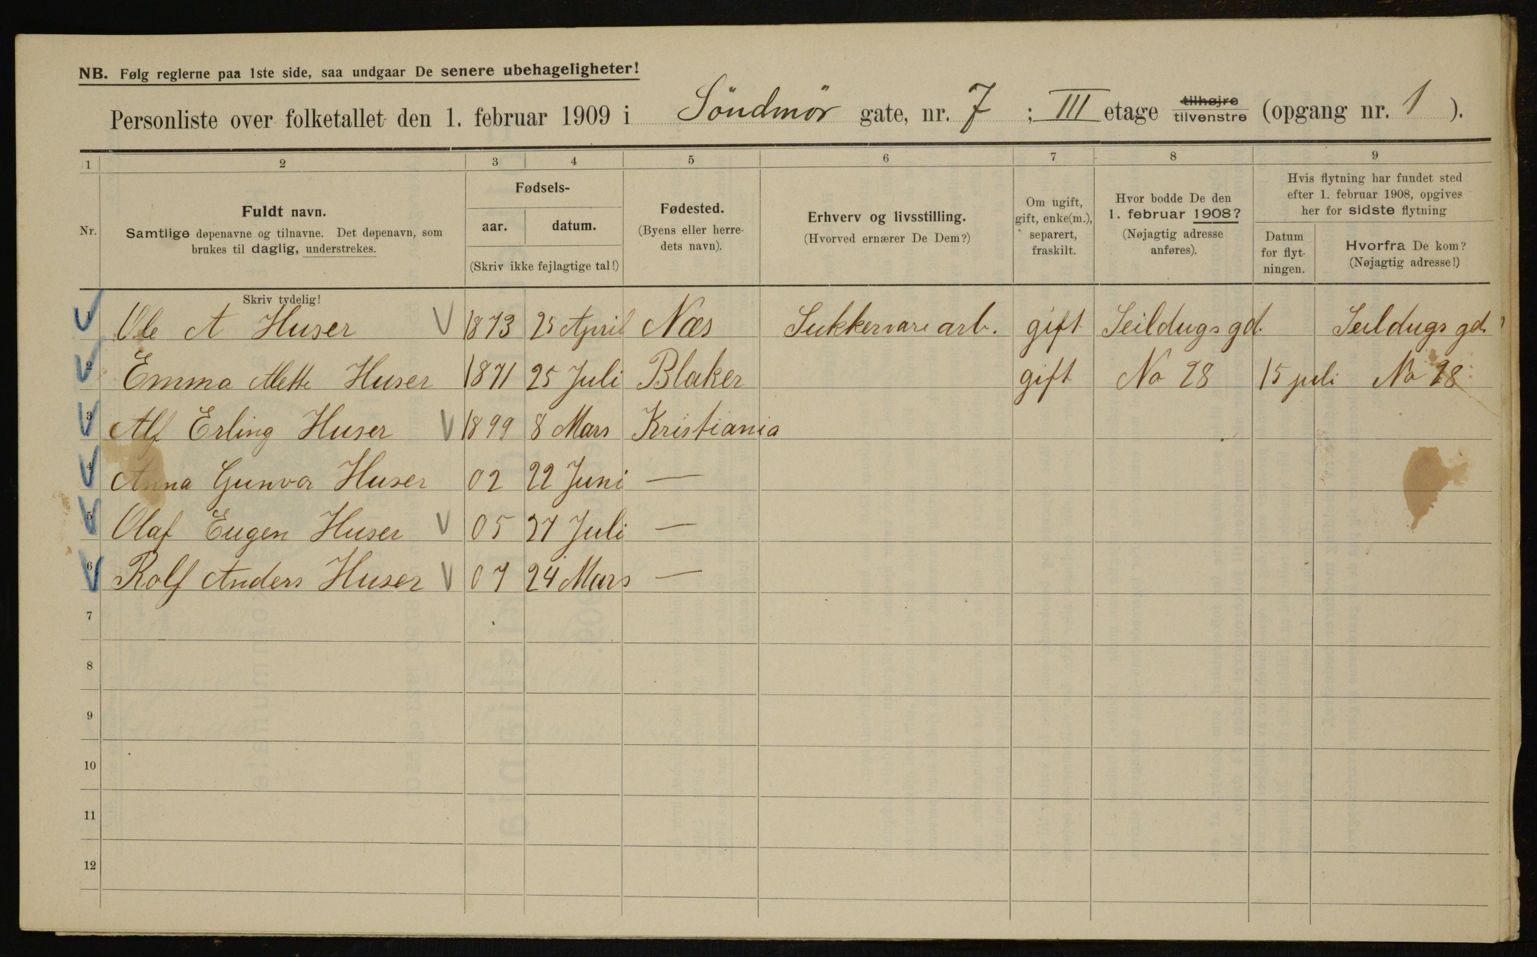 NB. Følg reglerne paa 1ste side, saa undgaar De senere ubehageligheter!
Personliste over folketallet den 1. februar 1909 i Söndmör gate, nr. 7 ; III etage tilhøjre tilvenstre (opgang nr. 1 ).
1 2 3 4 5 6 7 8 9
Nr.
Fuldt navn.
Samtlige døpenavne og tilnavne. Det døpenavn, som
brukes til daglig, understrekes.
Skriv tydelig!
Fødsels-
aar. datum.
(Skriv ikke fejlagtige tal!)
Fødested.
(Byens eller herre-
dets navn).
Erhverv og livsstilling.
(Hvorved ernærer De Dem?)
Om ugift,
gift, enke(m.),
separert,
fraskilt.
Hvor bodde De den
1. februar 1908?
(Nøjagtig adresse
anføres).
Hvis flytning har fundet sted
efter 1. februar 1908, opgives
her for sidste flytning
Datum
for flyt-
ningen.
Hvorfra De kom?
(Nøjagtig adresse!)
1 Ole A Huser 1873 25 April Næs Sukkervare arb. gift Seildugs gd. Seildugs gd.
2 Emma Alette Huser 1871 25 Juli Blaker gift No 28 15 juli No 28
3 Alf Erling Huser 1899 8 Mars Kristiania
4 Anna Gunvor Huser 02 22 Juni —
5 Olaf Eugen Huser 05 27 Juli —
6 Rolf Anders Huser 07 24 Mars —
7
8
9
10
11
12